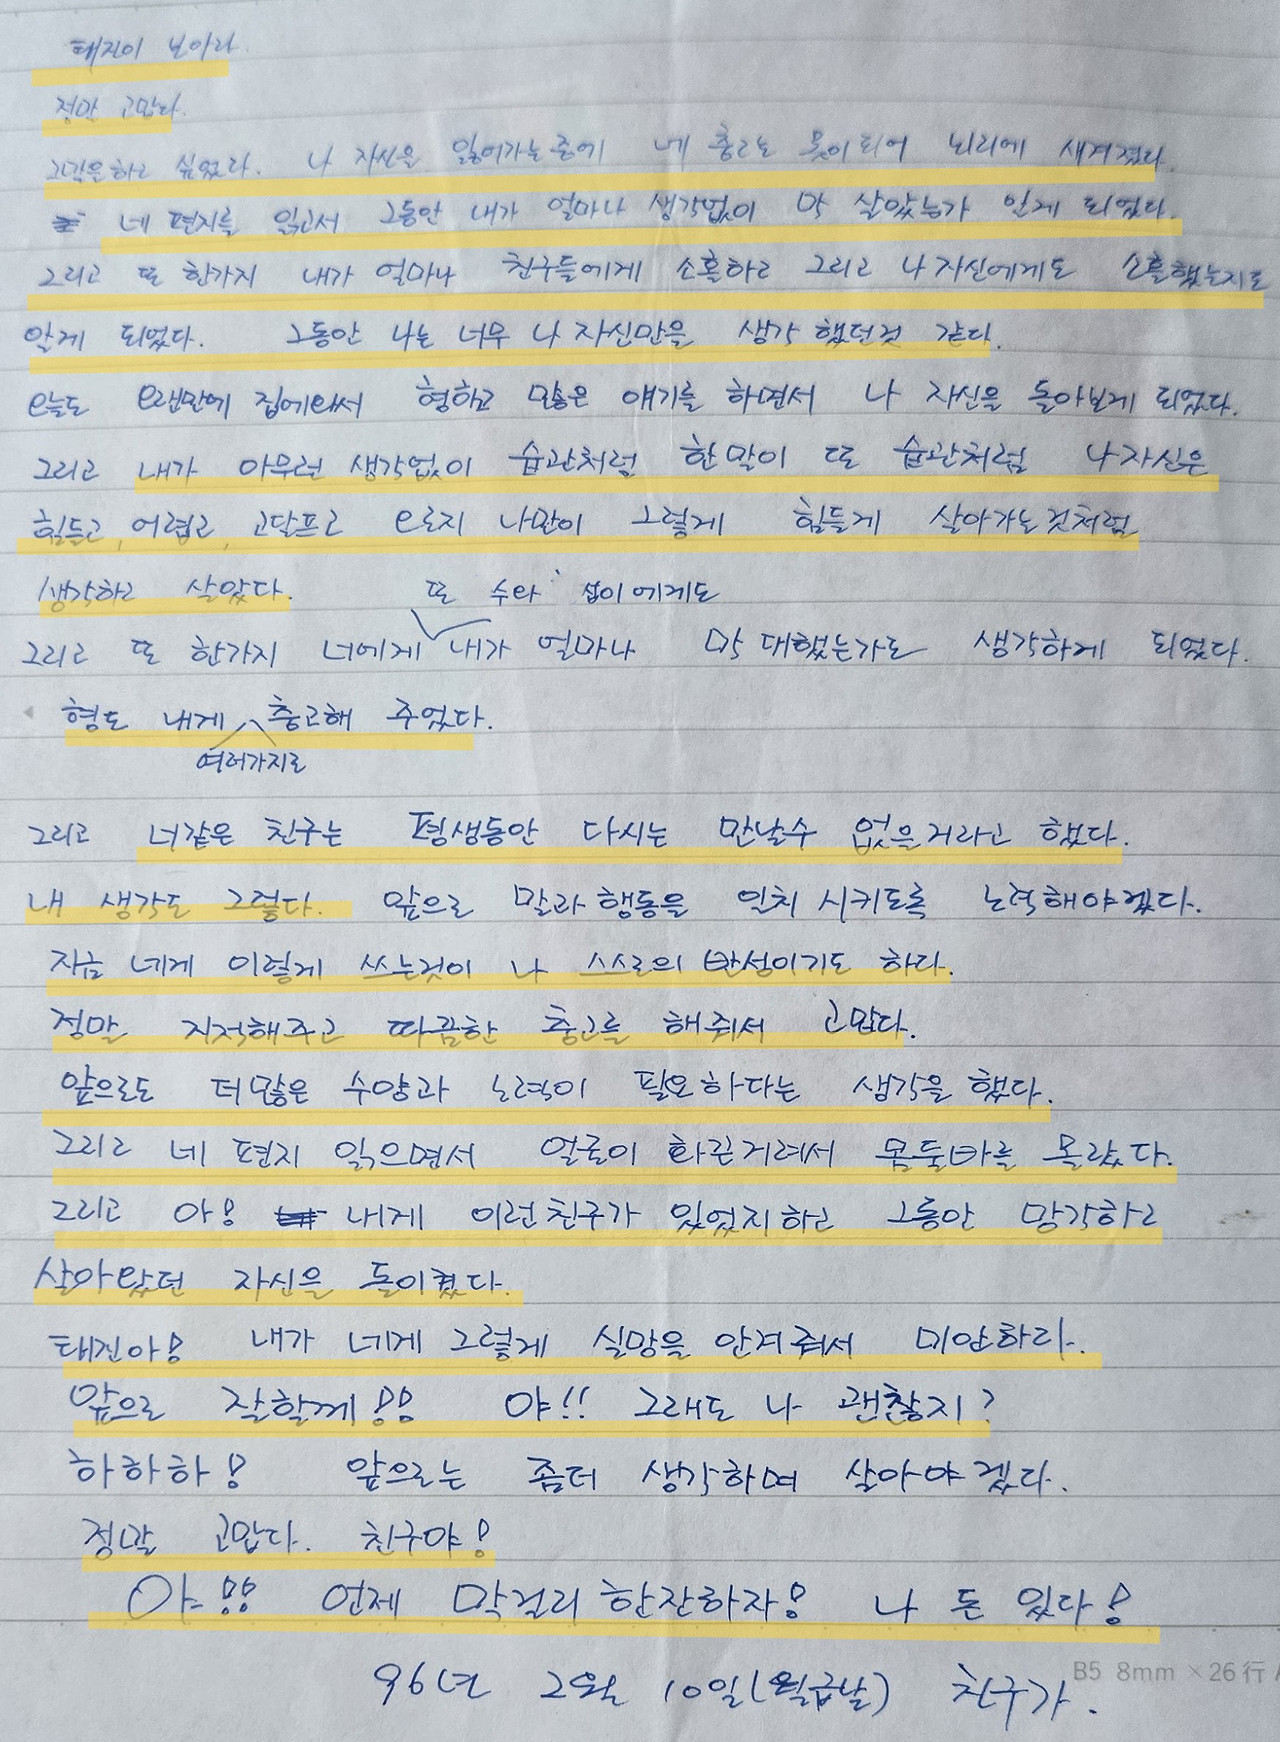 태진이 보아라
정말 고맙다.
그만은하고 싶었다. 나 자신을 잃어가는중에 네 충고는 못이되어 뇌리에 새겨졌다.
네 편지를 읽고서 그동안 내가 얼마나 생각없이 막 살았는가 알게 되었다.
그리고 또 한가지 내가 얼마나 친구들에게 소홀하고 그리고 나 자신에게도 소홀했는지도
알게 되었다. 그동안 나는 너무 나 자신만을 생각 했던것 같다.
오늘도 오랜만에 집에와서 형하고 많은 얘기를 하면서 나 자신을 돌아보게 되었다.
그리고 내가 아무런 생각없이 습관처럼 한말이 또 습관처럼 나자신은
힘들고, 어렵고, 고달프고 오로지 나만이 그렇게 힘들게 살아가는것처럼
생각하고 살았다. 또 수와 섭이에게도
그리고 또 한가지 너에게 내가 얼마나 막 대했는가도 생각하게 되었다.
형도 내게 충고해 주었다.
여러가지로
그리고 너같은 친구는 평생동안 다시는 만날수 없을거라고 했다.
내 생각도 그렇다. 앞으로 말과 행동을 일치 시키도록 노력해야겠다.
지금 네게 이렇게 쓰는것이 나 스스로의 반성이기도 하다.
정말 지적해주고 따끔한 충고를 해줘서 고맙다.
앞으로도 더많은 수양과 노력이 필요하다는 생각을 했다.
그리고 네 편지 읽으면서 얼굴이 화끈거려서 몸둘바를 몰랐다.
그리고 아! 내게 이런친구가 있었지하고 그동안 망각하고
살아왔던 자신을 돌이켰다.
태진아! 내가 네게 그렇게 실망을 안겨줘서 미안하다.
앞으로 잘할께!! 야!! 그래도 나 괜찮지?
하하하! 앞으로는 좀더 생각하며 살아야겠다.
정말 고맙다. 친구야!
야!! 언제 막걸리 한잔하자! 나 돈 있다!
96년 2월 10일(월급날) 친구가.
B5 8mm × 26行